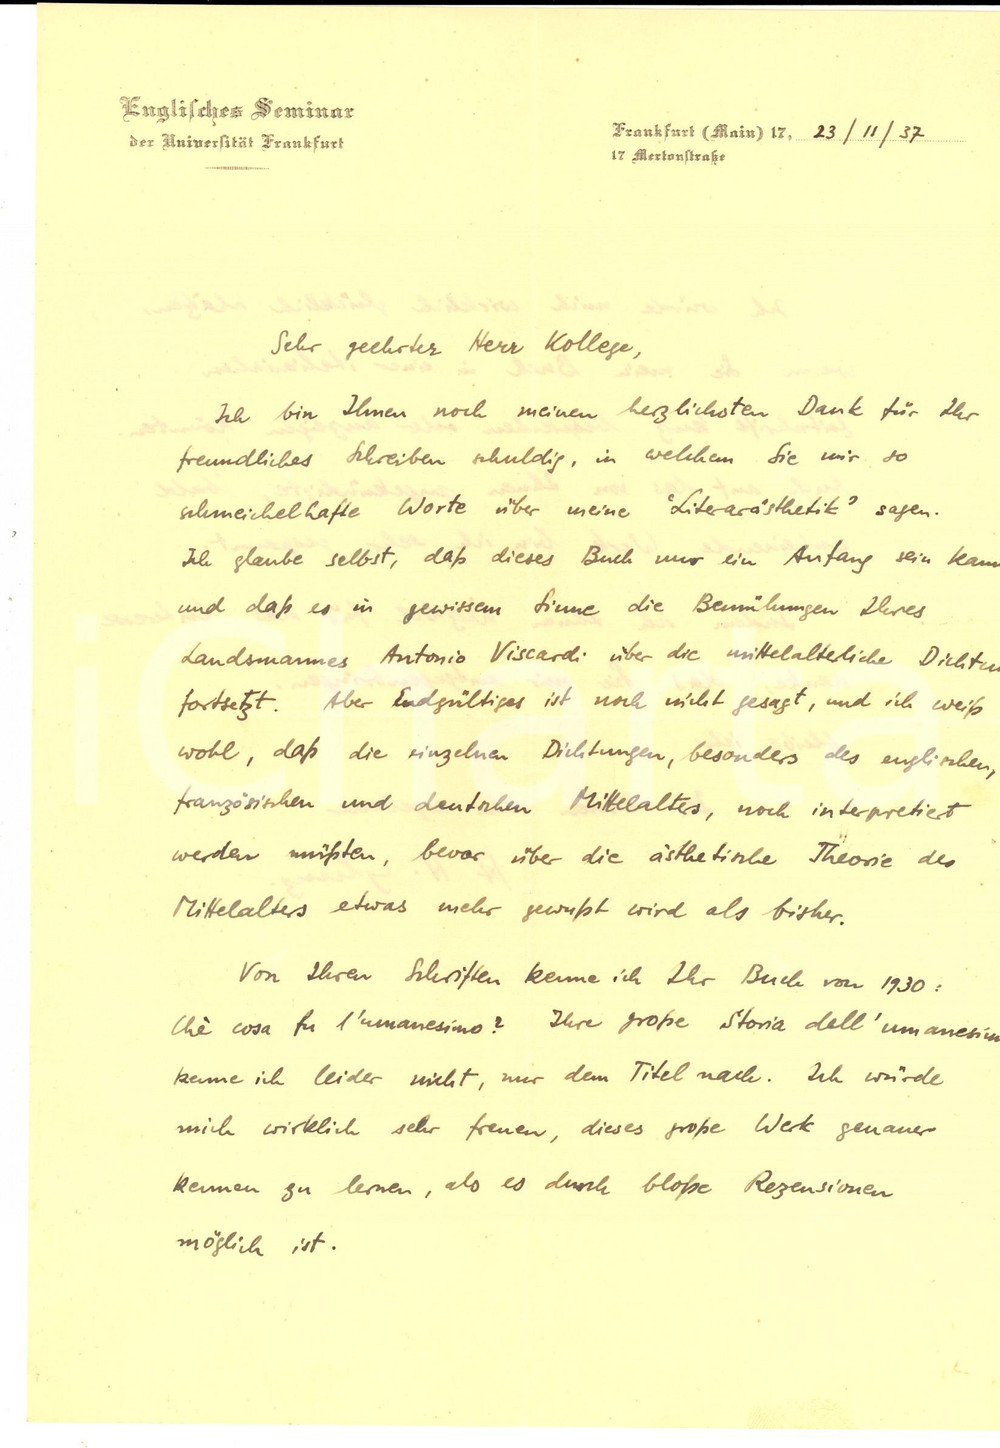 Englisches Seminar
der Universität Frankfurt
Frankfurt (Main) 17, 23/11/37
17 Mertonstraße
Sehr geehrter Herr Kollege,
Ich bin Ihnen noch meinen herzlichsten Dank für Ihr
freundliches Schreiben schuldig, in welchem Sie mir so
schmeichelhafte Worte über meine 'Literarästhetik' sagen.
Ich glaube selbst, daß dieses Buch nur ein Anfang sein kann
und daß es in gewissem Sinne die Bemühungen Ihres
Landsmannes Antonio Viscardi über die mittelalterliche Dichtun
fortsetzt. Aber Endgültiges ist noch nicht gesagt, und ich weiß
wohl, daß die einzelnen Dichtungen, besonders des englischen,
französischen und deutschen Mittelalters, noch interpretiert
werden müßten, bevor über die ästhetische Theorie des
Mittelalters etwas mehr gewußt wird als bisher.
Von Ihren Schriften kenne ich Ihr Buch von 1930:
Chè cosa fu l'umanesimo? Ihre große Storia dell'umanesim
kenne ich leider nicht, nur dem Titel nach. Ich würde
mich wirklich sehr freuen, dieses große Werk genauer
kennen zu lernen, als es durch bloße Rezensionen
möglich ist.